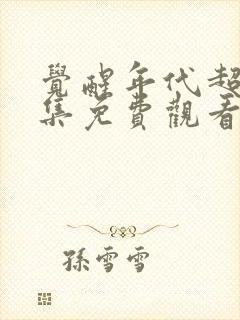 覺醒年代超
集免費觀看
孫雪雪